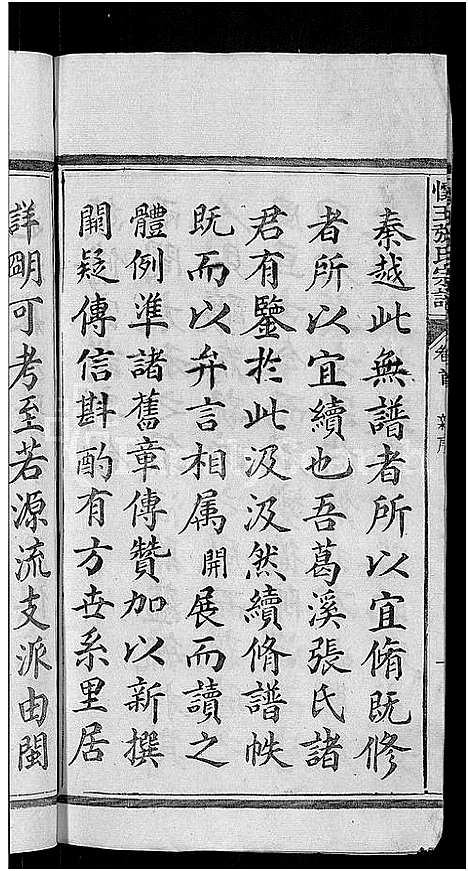 秦越此無譜者所以宜脩既修
者所以宜續也吾葛溪張氏諸
君有鑒於此汲汲然續脩譜帙
既而以弁言相属開展而讀之
體例準諸舊章傳贊加以新撰
闕疑傳信斟酌有方世系里居
詳明可考至若源流支派由閩
玉張氏宗譜
卷首